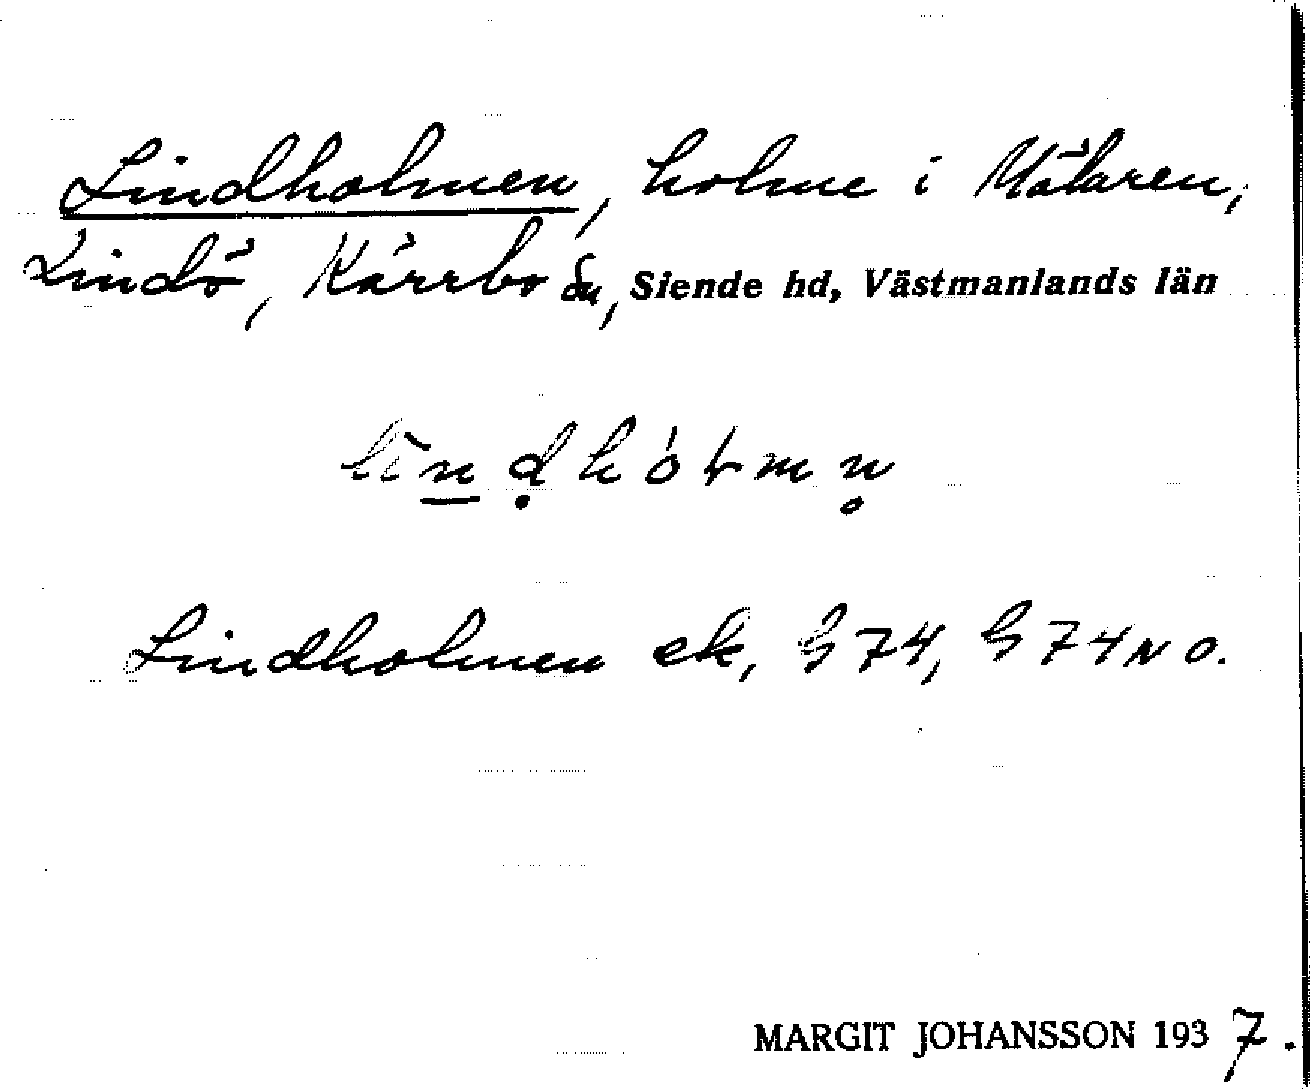 Lindholmen, holme i Mälaren,
Lindö, Kärrbo sn, Siende hd, Västmanlands län
Lindholmen ek, S 74, S 74 NO.
MARGIT JOHANSSON 1937.